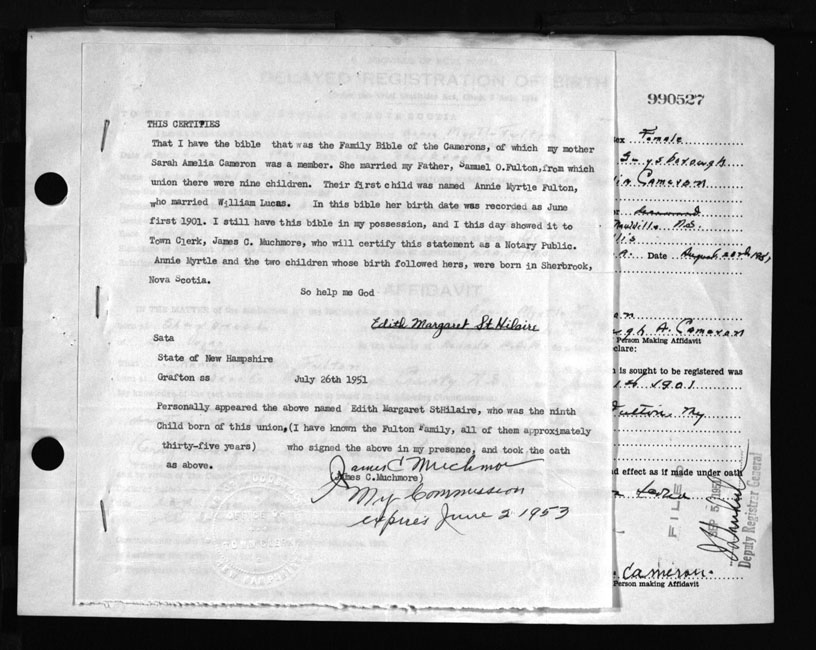 DELAYED REGISTRATION OF BIRTH
990527
THIS CERTIFIES
That I have the bible that was the Family Bible of the Camerons, of which my mother
Sarah Amelia Cameron was a member. She married my Father, Samuel O.Fulton,from which
union there were nine children. Their first child was named Annie Myrtle Fulton,
who married William Lucas. In this bible her birth date was recorded as June
first 1901. I still have this bible in my possession, and I this day showed it to
Town Clerk, James C. Muchmore, who will certify this statement as a Notary Public.
Annie Myrtle and the two children whose birth followed hers, were born in Sherbrook,
Nova Scotia.
So help me God
AFFIDAVIT
Edith Margaret StHilaire
Sata
State of New Hampshire
Grafton ss July 26th 1951
Personally appeared the above named Edith Margaret StHilaire, who was the ninth
Child born of this union,(I have known the Fulton Family, all of them approximately
thirty-five years) who signed the above in my presence, and took the oath
as above.
James C Muchmore
(James C.Muchmore)
My Commission
expires June 2 1953
ex Female
Guysborough
Cameron
Date August
A. Cameron
Person Making Affidavit
clare:
is sought to be registered was
1st 1901
Fulton
d effect as if made under oath
FILED
SEP 5 1951
Deputy Registrar General
Cameron
Person making Affidavit